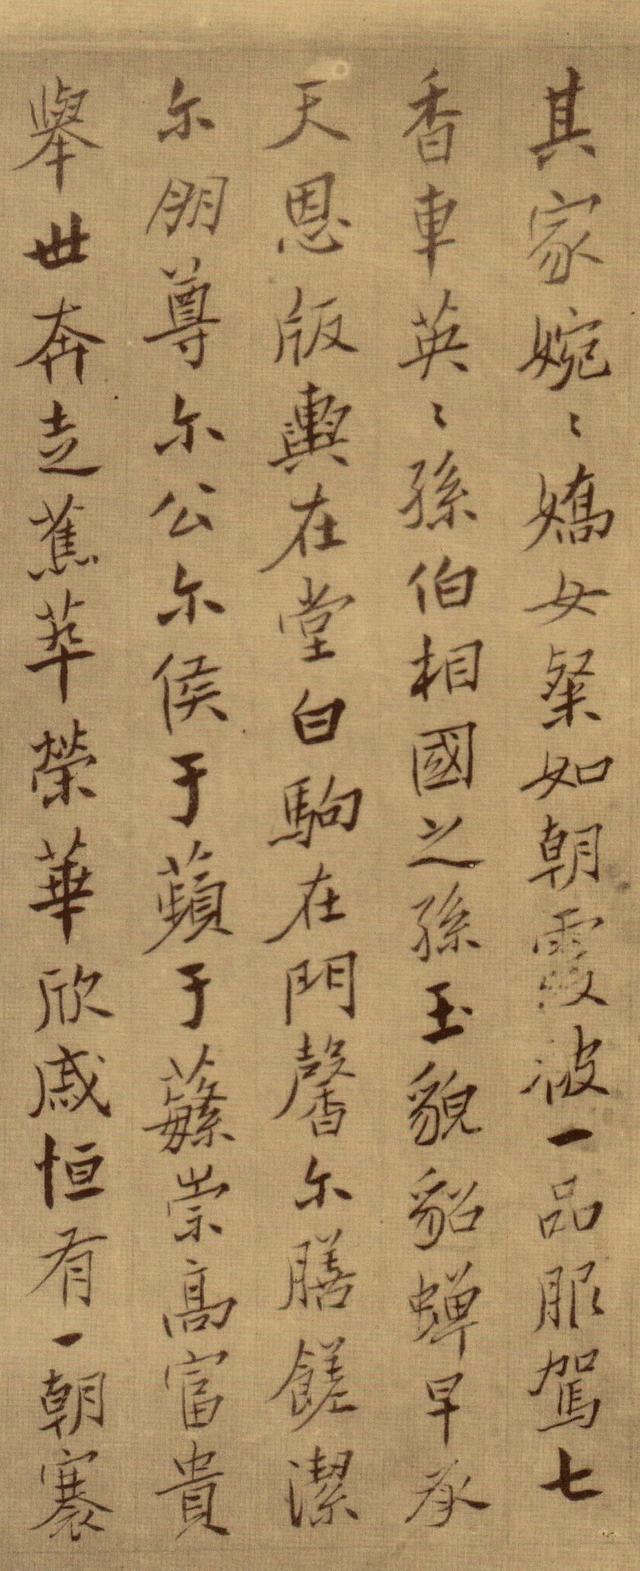 其家婉〻嬌女粲如朝霞被一品服駕七
香車英〻孫伯相國之孫玉貌貂蟬早承
天恩版輿在堂白駒在門馨尔膳饈潔
尔朋尊尔公尔侯于蘋于蘩崇高富貴
舉世奔走蕉萃榮華欣戚恒有一朝褰